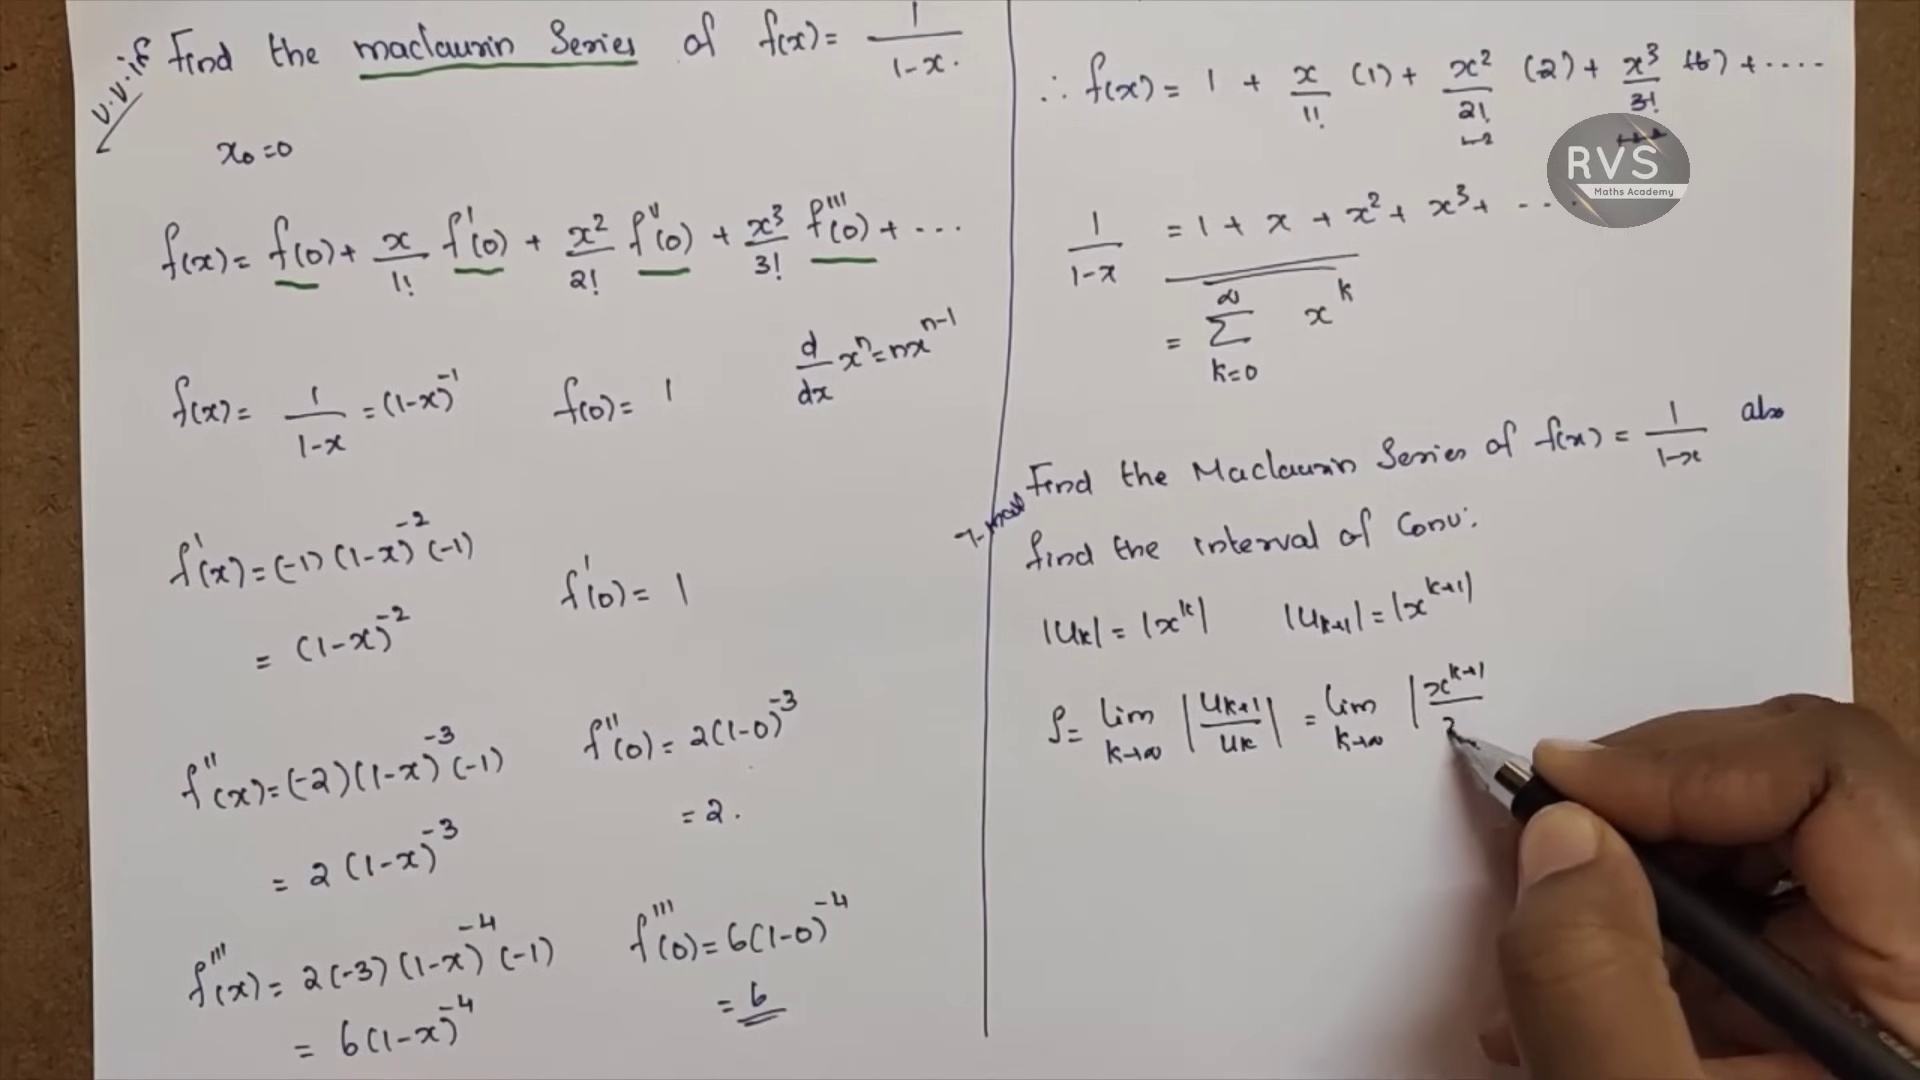 v.v.if Find the maclaurin Series of f(x) = 1/1-x.
x₀=0
f(x) = f(0) + x/1! f'(0) + x²/2! f''(0) + x³/3! f'''(0) + ...
f(x) = 1/1-x = (1-x)⁻¹ f(0) = 1 d/dx xⁿ = nxⁿ⁻¹
f'(x) = (-1)(1-x)⁻²(-1) f'(0) = 1
= (1-x)⁻²
f''(x) = (-2)(1-x)⁻³(-1) f''(0) = 2(1-0)⁻³
= 2(1-x)⁻³ = 2.
f'''(x) = 2(-3)(1-x)⁻⁴(-1) f'''(0) = 6(1-0)⁻⁴
= 6(1-x)⁻⁴ = 6
∴ f(x) = 1 + x/1! (1) + x²/2! (2) + x³/3! (6) + ....
RVS
Maths Academy
1/1-x = 1 + x + x² + x³ + ...
= ∑ k=0 ∞ xᵏ
Find the Maclaurin Series of f(x) = 1/1-x also
find the interval of Conv:
|uₖ| = |xᵏ| |uₖ₊₁| = |xᵏ⁺¹|
ρ = lim k→∞ |uₖ₊₁/uₖ| = lim k→∞ |xᵏ⁺¹/